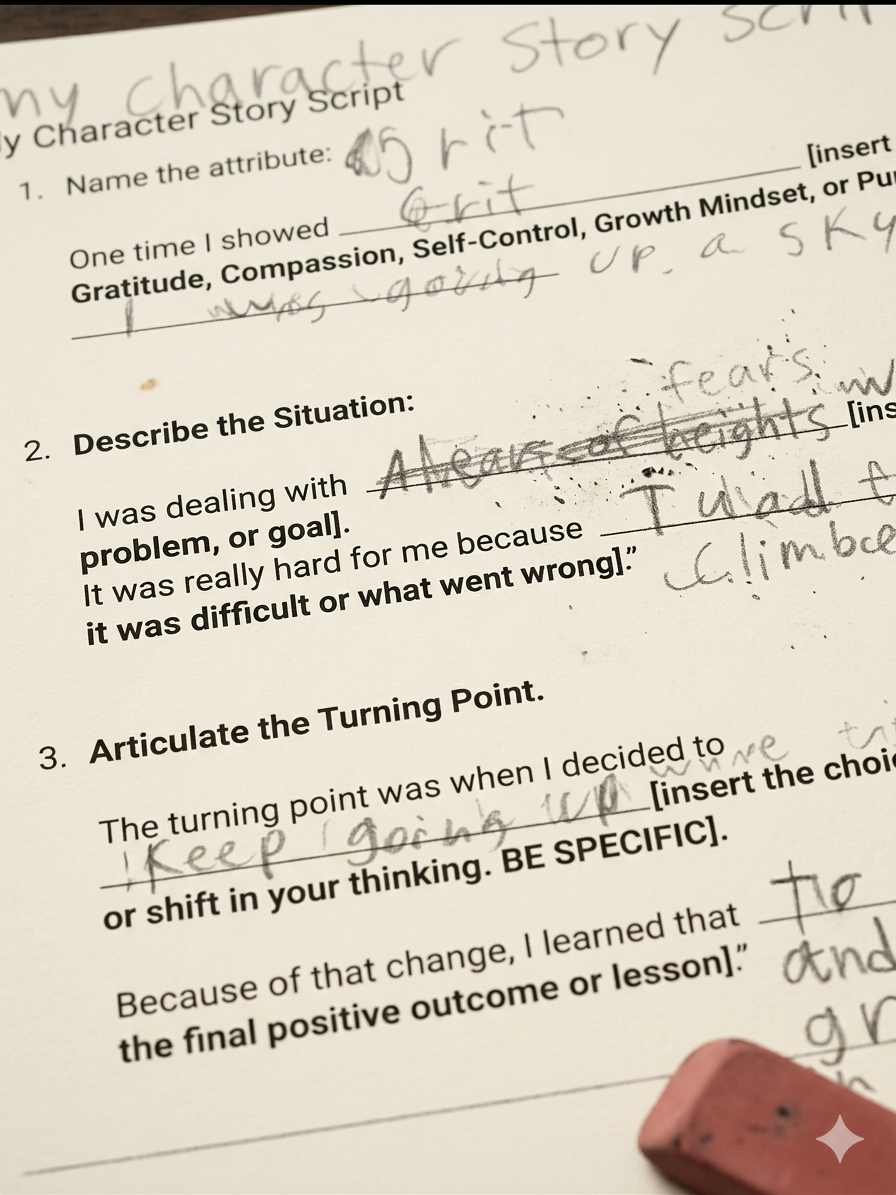 my character story scri
ly Character Story Script
1. Name the attribute: Grit
Grit
One time I showed [insert
Gratitude, Compassion, Self-Control, Growth Mindset, or Pu
I was going up a sky
fears
2. Describe the Situation:
of heights [ins
I was dealing with
problem, or goal].
It was really hard for me because I
it was difficult or what went wrong].”
climbe
3. Articulate the Turning Point.
The turning point was when I decided to
Keep going up [insert the choi
or shift in your thinking. BE SPECIFIC].
Because of that change, I learned that
the final positive outcome or lesson].”
and
gr